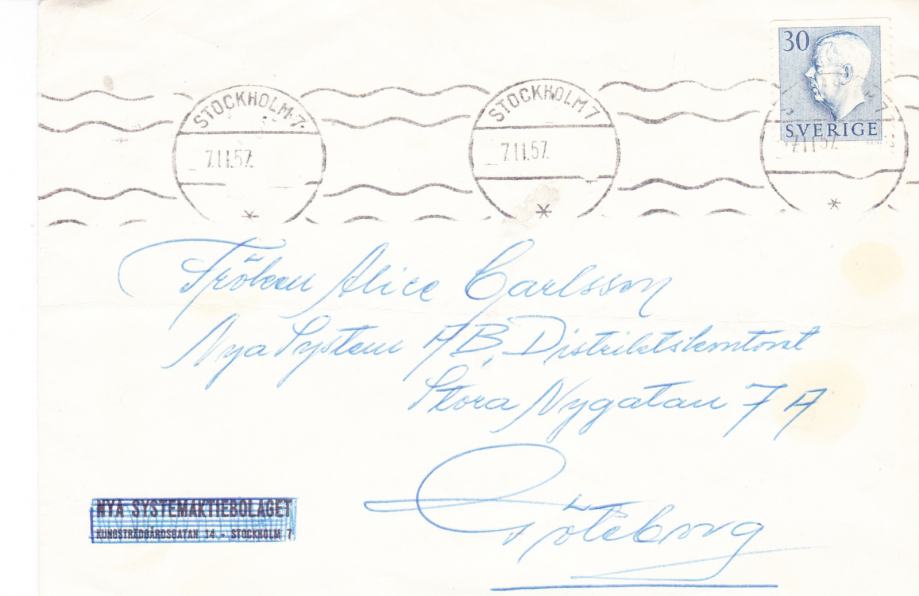 30
SVERIGE
STOCKHOLM 7
7.11.57.
STOCKHOLM 7
7.11.57.
7.11.57.
Fröken Alice Carlsson
Nya System AB, Distriktskontoret
Stora Nygatan 7 A
Göteborg
NYA SYSTEMAKTIEBOLAGET
KUNGSTRÄDGÅRDSGATAN 14 - STOCKHOLM 7